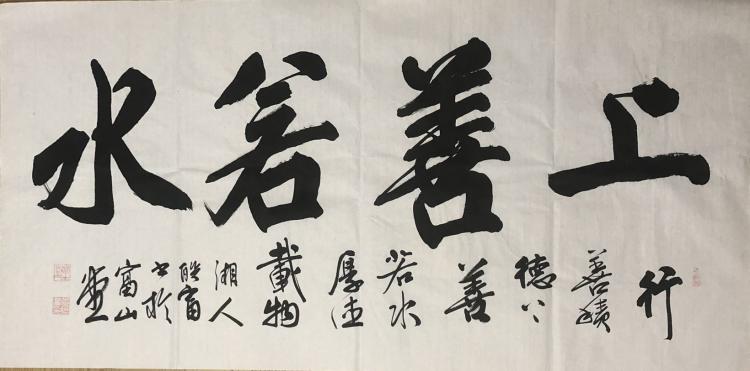 上善若水
行
善積
德上
善
若水
厚德
載物
湘人
富
书於
富山